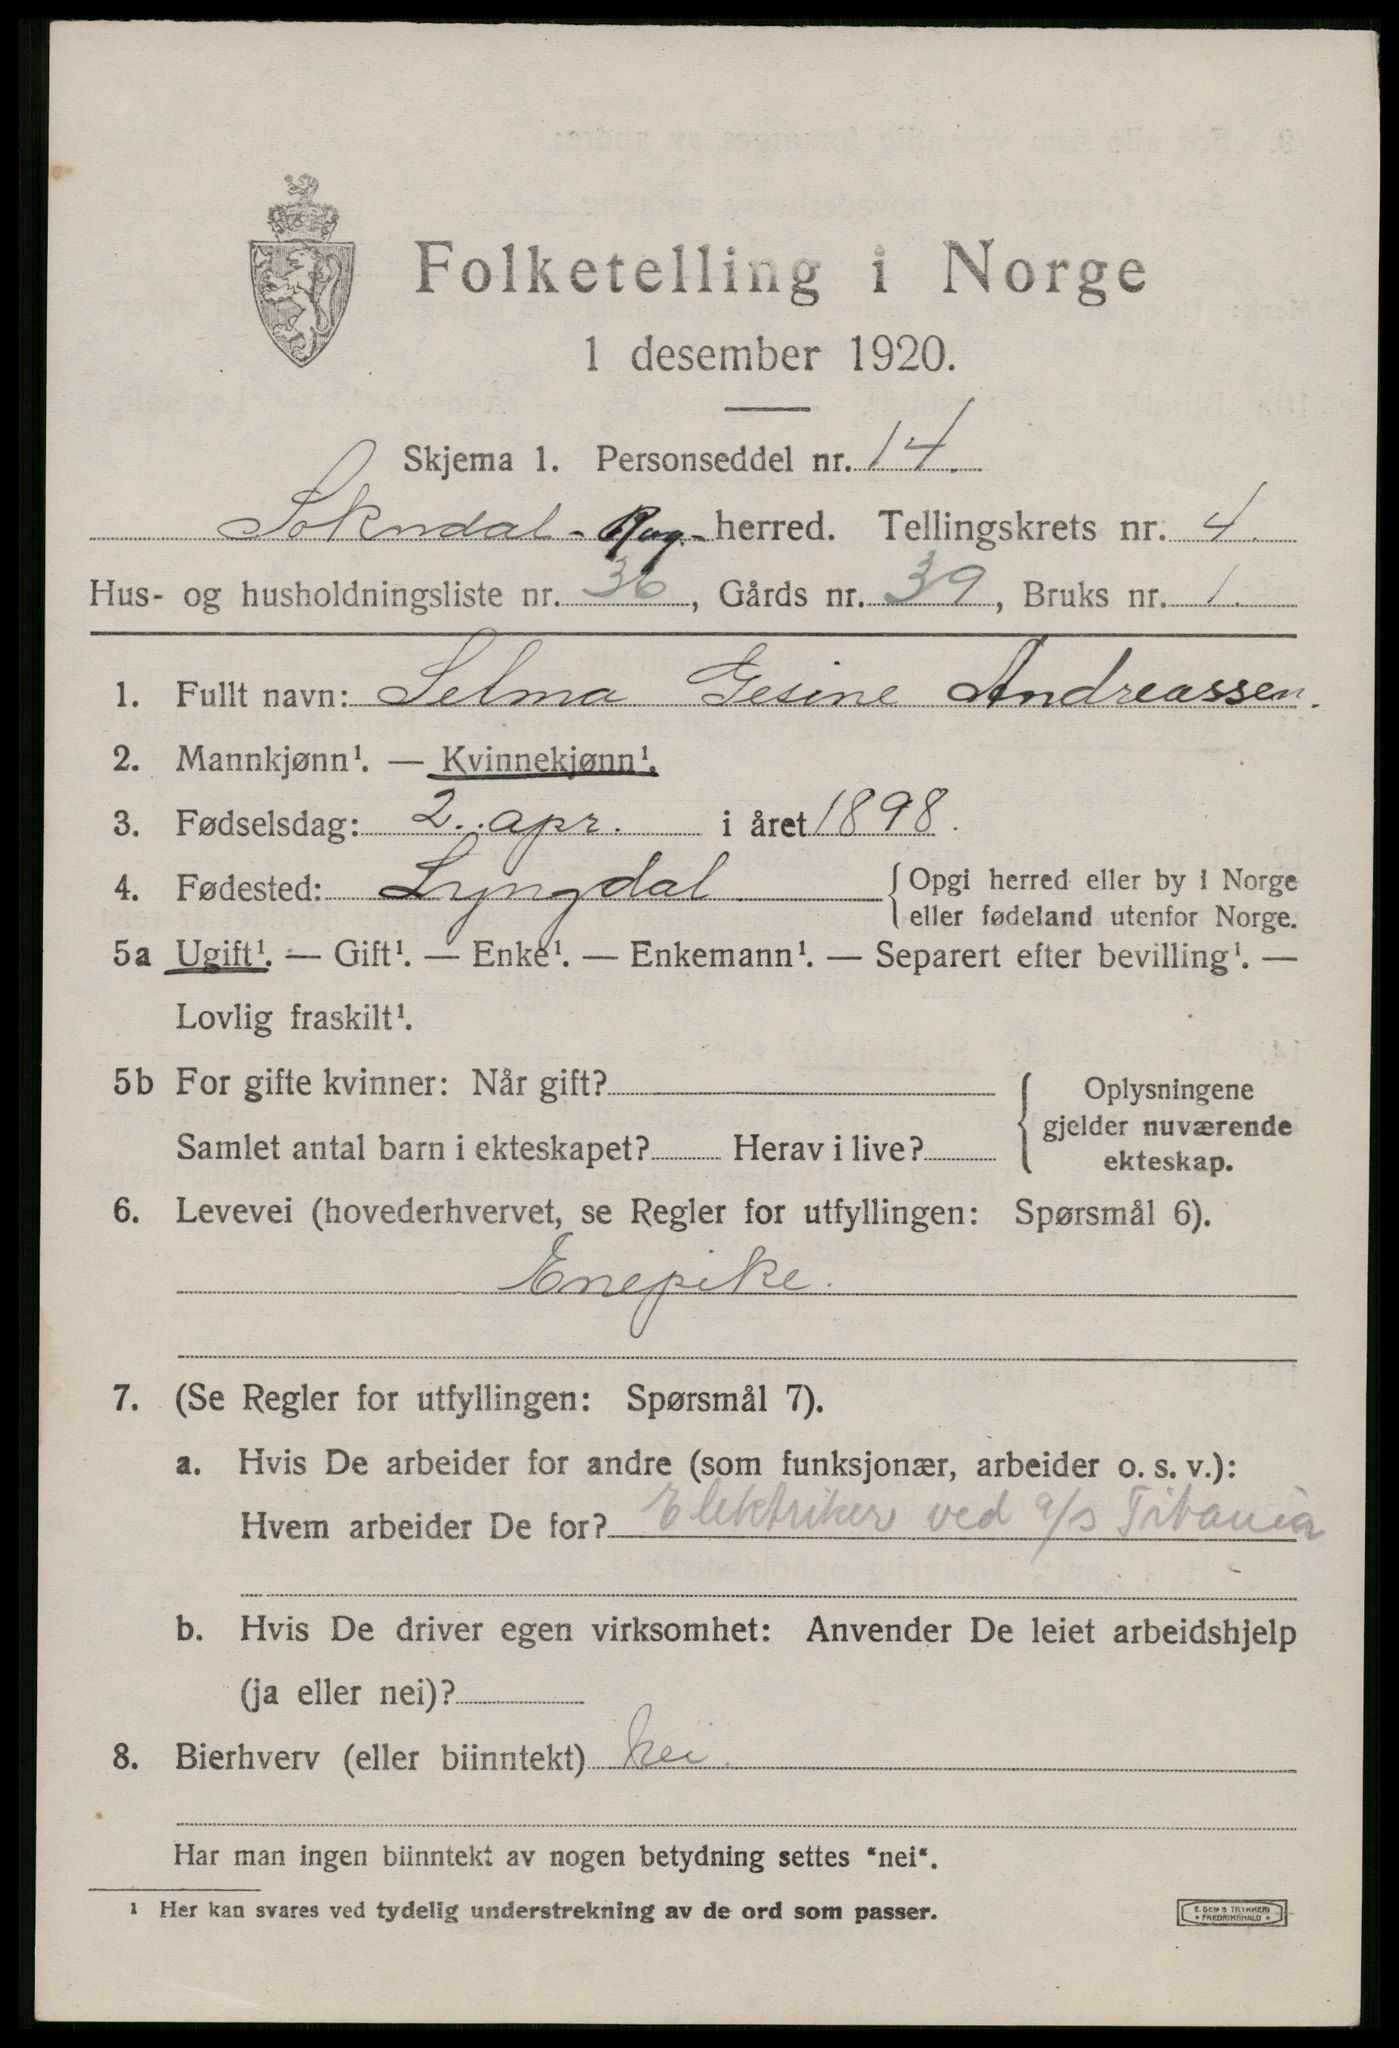 Folketelling i Norge
1 desember 1920.
Skjema 1. Personseddel nr. 14.
Sokndal - Rog.- herred. Tellingskrets nr. 4.
Hus- og husholdningsliste nr. 36, Gårds nr. 39, Bruks nr. 1.
1. Fullt navn: Selma Gesine Andreassen.
2. Mannkjønn¹. — Kvinnekjønn¹.
3. Fødselsdag: 2. apr. i året 1898.
4. Fødested: Lyngdal { Opgi herred eller by i Norge
eller fødeland utenfor Norge.
5a Ugift¹. — Gift¹. — Enke¹. — Enkemann¹. — Separert efter bevilling¹. —
Lovlig fraskilt¹.
5b For gifte kvinner: Når gift?
Samlet antal barn i ekteskapet? Herav i live?
{ Oplysningene
gjelder nuværende
ekteskap.
6. Levevei (hovederhvervet, se Regler for utfyllingen: Spørsmål 6).
Enepike.
7. (Se Regler for utfyllingen: Spørsmål 7).
a. Hvis De arbeider for andre (som funksjonær, arbeider o. s. v.):
Hvem arbeider De for? Elektriker ved a/s Titania
b. Hvis De driver egen virksomhet: Anvender De leiet arbeidshjelp
(ja eller nei)?
8. Bierhverv (eller biinntekt) Nei.
Har man ingen biinntekt av nogen betydning settes "nei".
¹ Her kan svares ved tydelig understrekning av de ord som passer.
E. SEM'S TRYKKERI
• FREDRIKSHALD •